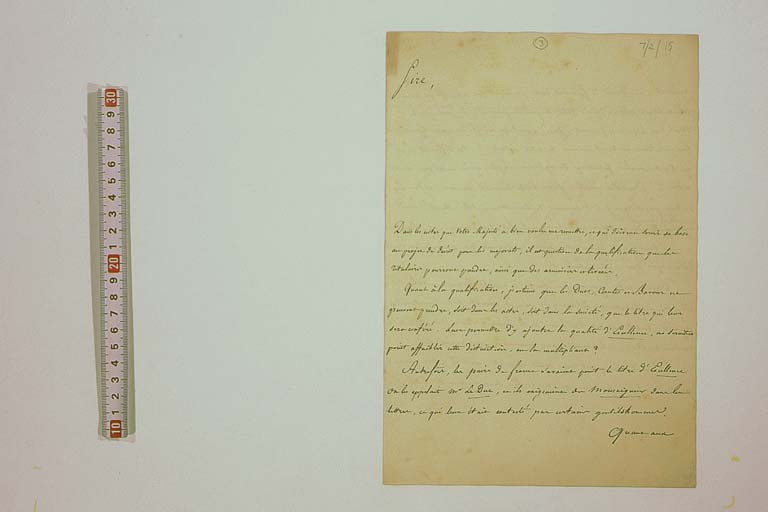 3
7/2/15
Sire,
Dans les notes que Votre Majesté a bien voulu me remettre, et qui doivent servir de base
au projet de décret pour les majorats, il est question de la qualification que les
titulaires pourront prendre, ainsi que des armoiries et livrées.
Quant à la qualification, j'estime que les Ducs, Comtes et Barons ne
peuvent prendre, soit dans les actes, soit dans la société, que le titre qui leur
sera conféré. Leur permettre d'y ajouter la qualité d'Excellence, ne serait-ce
point affaiblir cette distinction, en la multipliant ?
Autrefois, les pairs de france n'avaient point le titre d'Excellence.
On les appelait Mr Le Duc, et ils exigeaient du Monseigneur dans les
lettres, ce qui leur était contesté par certains gentilshommes.
Quant aux
30
9
8
7
6
5
4
3
2
1
20
9
8
7
6
5
4
3
2
1
10